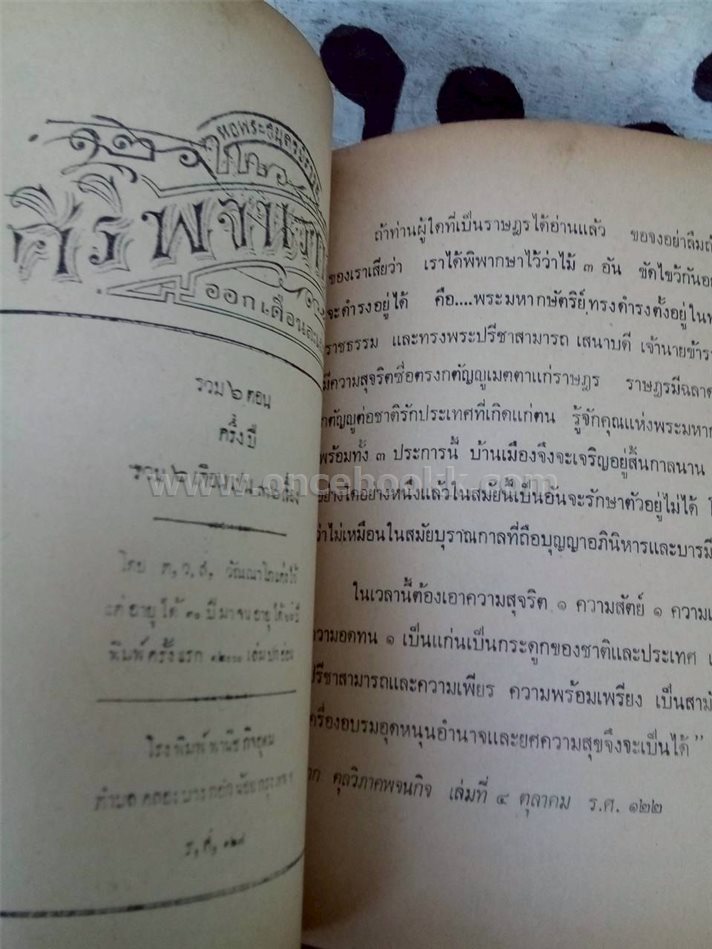 หอพระสมุดวชิรญาณ
๑๒๖
ศิริพจนภาค
ออกเดือนละ
รวม ๖ ตอน
ครึ่งปี
รวม ๖ เดือน เป็น
โดย ต, ว, ส, วัณณาโภ
แต่อายุได้ ๓๑ ปีมาจนอายุได้
พิมพ์ครั้งแรก
โรงพิมพ์พานิชกิจอุดม
ตำบล คลองบาง
ร, ศ, ๑๒๗
ถ้าท่านผู้ใดที่เป็นราษฎรได้อ่านแล้ว ขอจงอย่าลืม
ของเราเสียว่า เราได้พิพากษาไว้ว่าไม้ ๓ อัน ขัดไขว้กัน
จะดำรงอยู่ได้ คือ....พระมหากษัตริย์ทรงดำรงตั้งอยู่ใน
ราชธรรม และทรงพระปรีชาสามารถ เสนาบดี เจ้านายข้า
มีความสุจริตซื่อตรงกตัญญูเมตตาแก่ราษฎร ราษฎรมีฉลาด
กตัญญูต่อชาติรักประเทศที่เกิดแก่ตน รู้จักคุณแห่งพระมหา
พร้อมทั้ง ๓ ประการนี้ บ้านเมืองจึงจะเจริญอยู่สิ้นกาลนาน
อย่างใดอย่างหนึ่งแล้วในสมัยนี้เป็นอันจะรักษาตัวอยู่ไม่ได้
ว่าไม่เหมือนในสมัยบุราณกาลที่ถือบุญญาอภินิหารและบารมี
ในเวลานี้ต้องเอาความสุจริต ๑ ความสัตย์ ๑
ความอดทน ๑ เป็นแก่นเป็นกระดูกของชาติและประเทศ
ปรีชาสามารถและความเพียร ความพร้อมเพรียง เป็น
เครื่องอบรมอุดหนุนอำนาจและยศความสุขจึงจะเป็นได้”
ตุลวิภาคพจนกิจ เล่มที่ ๔ ตุลาคม ร.ศ. ๑๒๒
www.oncebookk.com